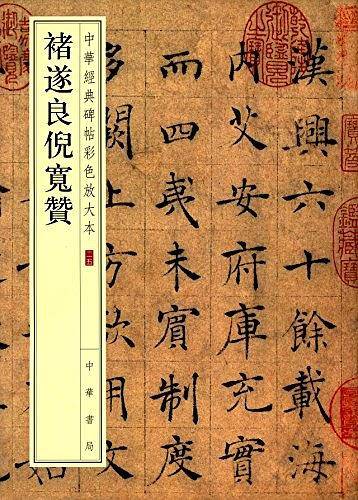 漢興六十餘載海
內艾安府庫充實
而四夷未賓制度
多闕上方欲用文
中華經典碑帖彩色放大本
二五
中華書局
褚遂良倪寬贊